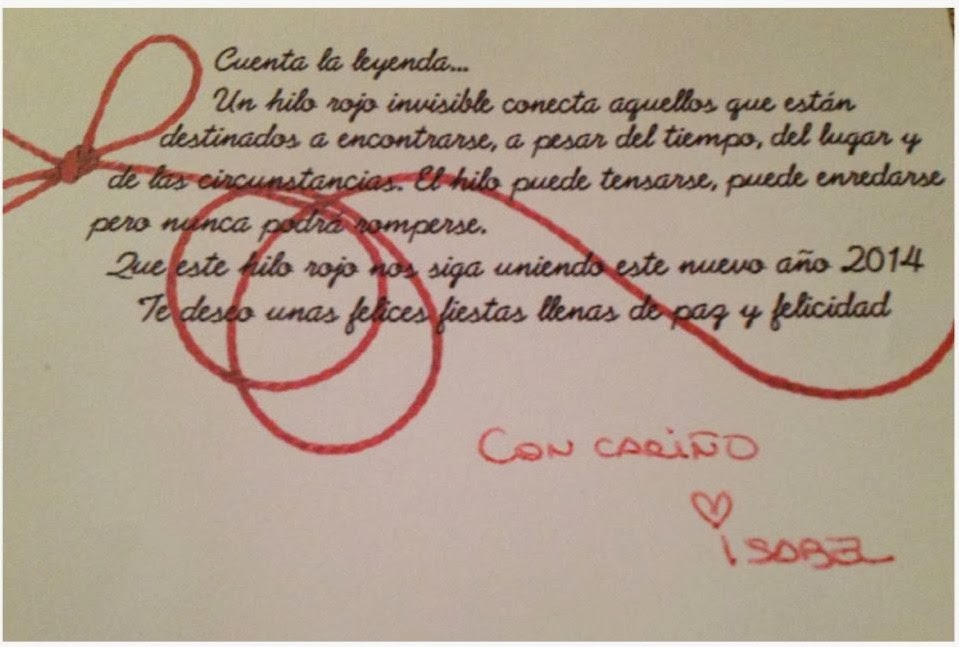 Cuenta la leyenda...
Un hilo rojo invisible conecta aquellos que están
destinados a encontrarse, a pesar del tiempo, del lugar y
de las circunstancias. El hilo puede tensarse, puede enredarse
pero nunca podrá romperse.
Que este hilo rojo nos siga uniendo este nuevo año 2014
Te deseo unas felices fiestas llenas de paz y felicidad
CON CARIÑO
ISABEL